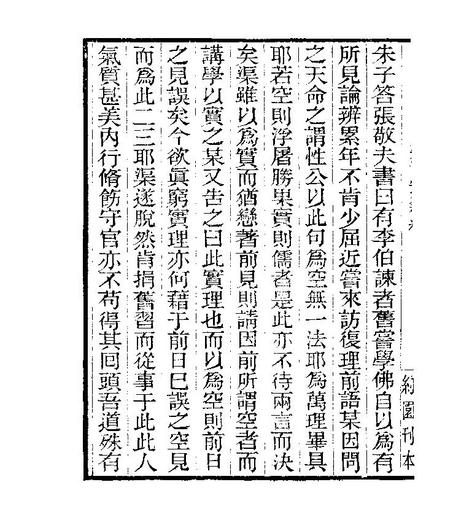 朱子答張敬夫書曰有李伯諫者舊嘗學佛自以爲有
所見論辨累年不肯少屈近嘗來訪復理前語某因問
之天命之謂性公以此句爲空無一法耶爲萬理畢具
耶若空則浮屠勝果實則儒者是此亦不待兩言而決
矣渠雖以爲實而猶戀著前見則請因前所謂空者而
講學以實之某又告之曰此實理也而以爲空則前日
之見誤矣今欲眞窮實理亦何藉于前日已誤之空見
而爲此二三耶渠遂脫然肯捐舊習而從事于此此人
氣質甚美內行脩飭守官亦不苟得其回頭吾道殊有
刊本